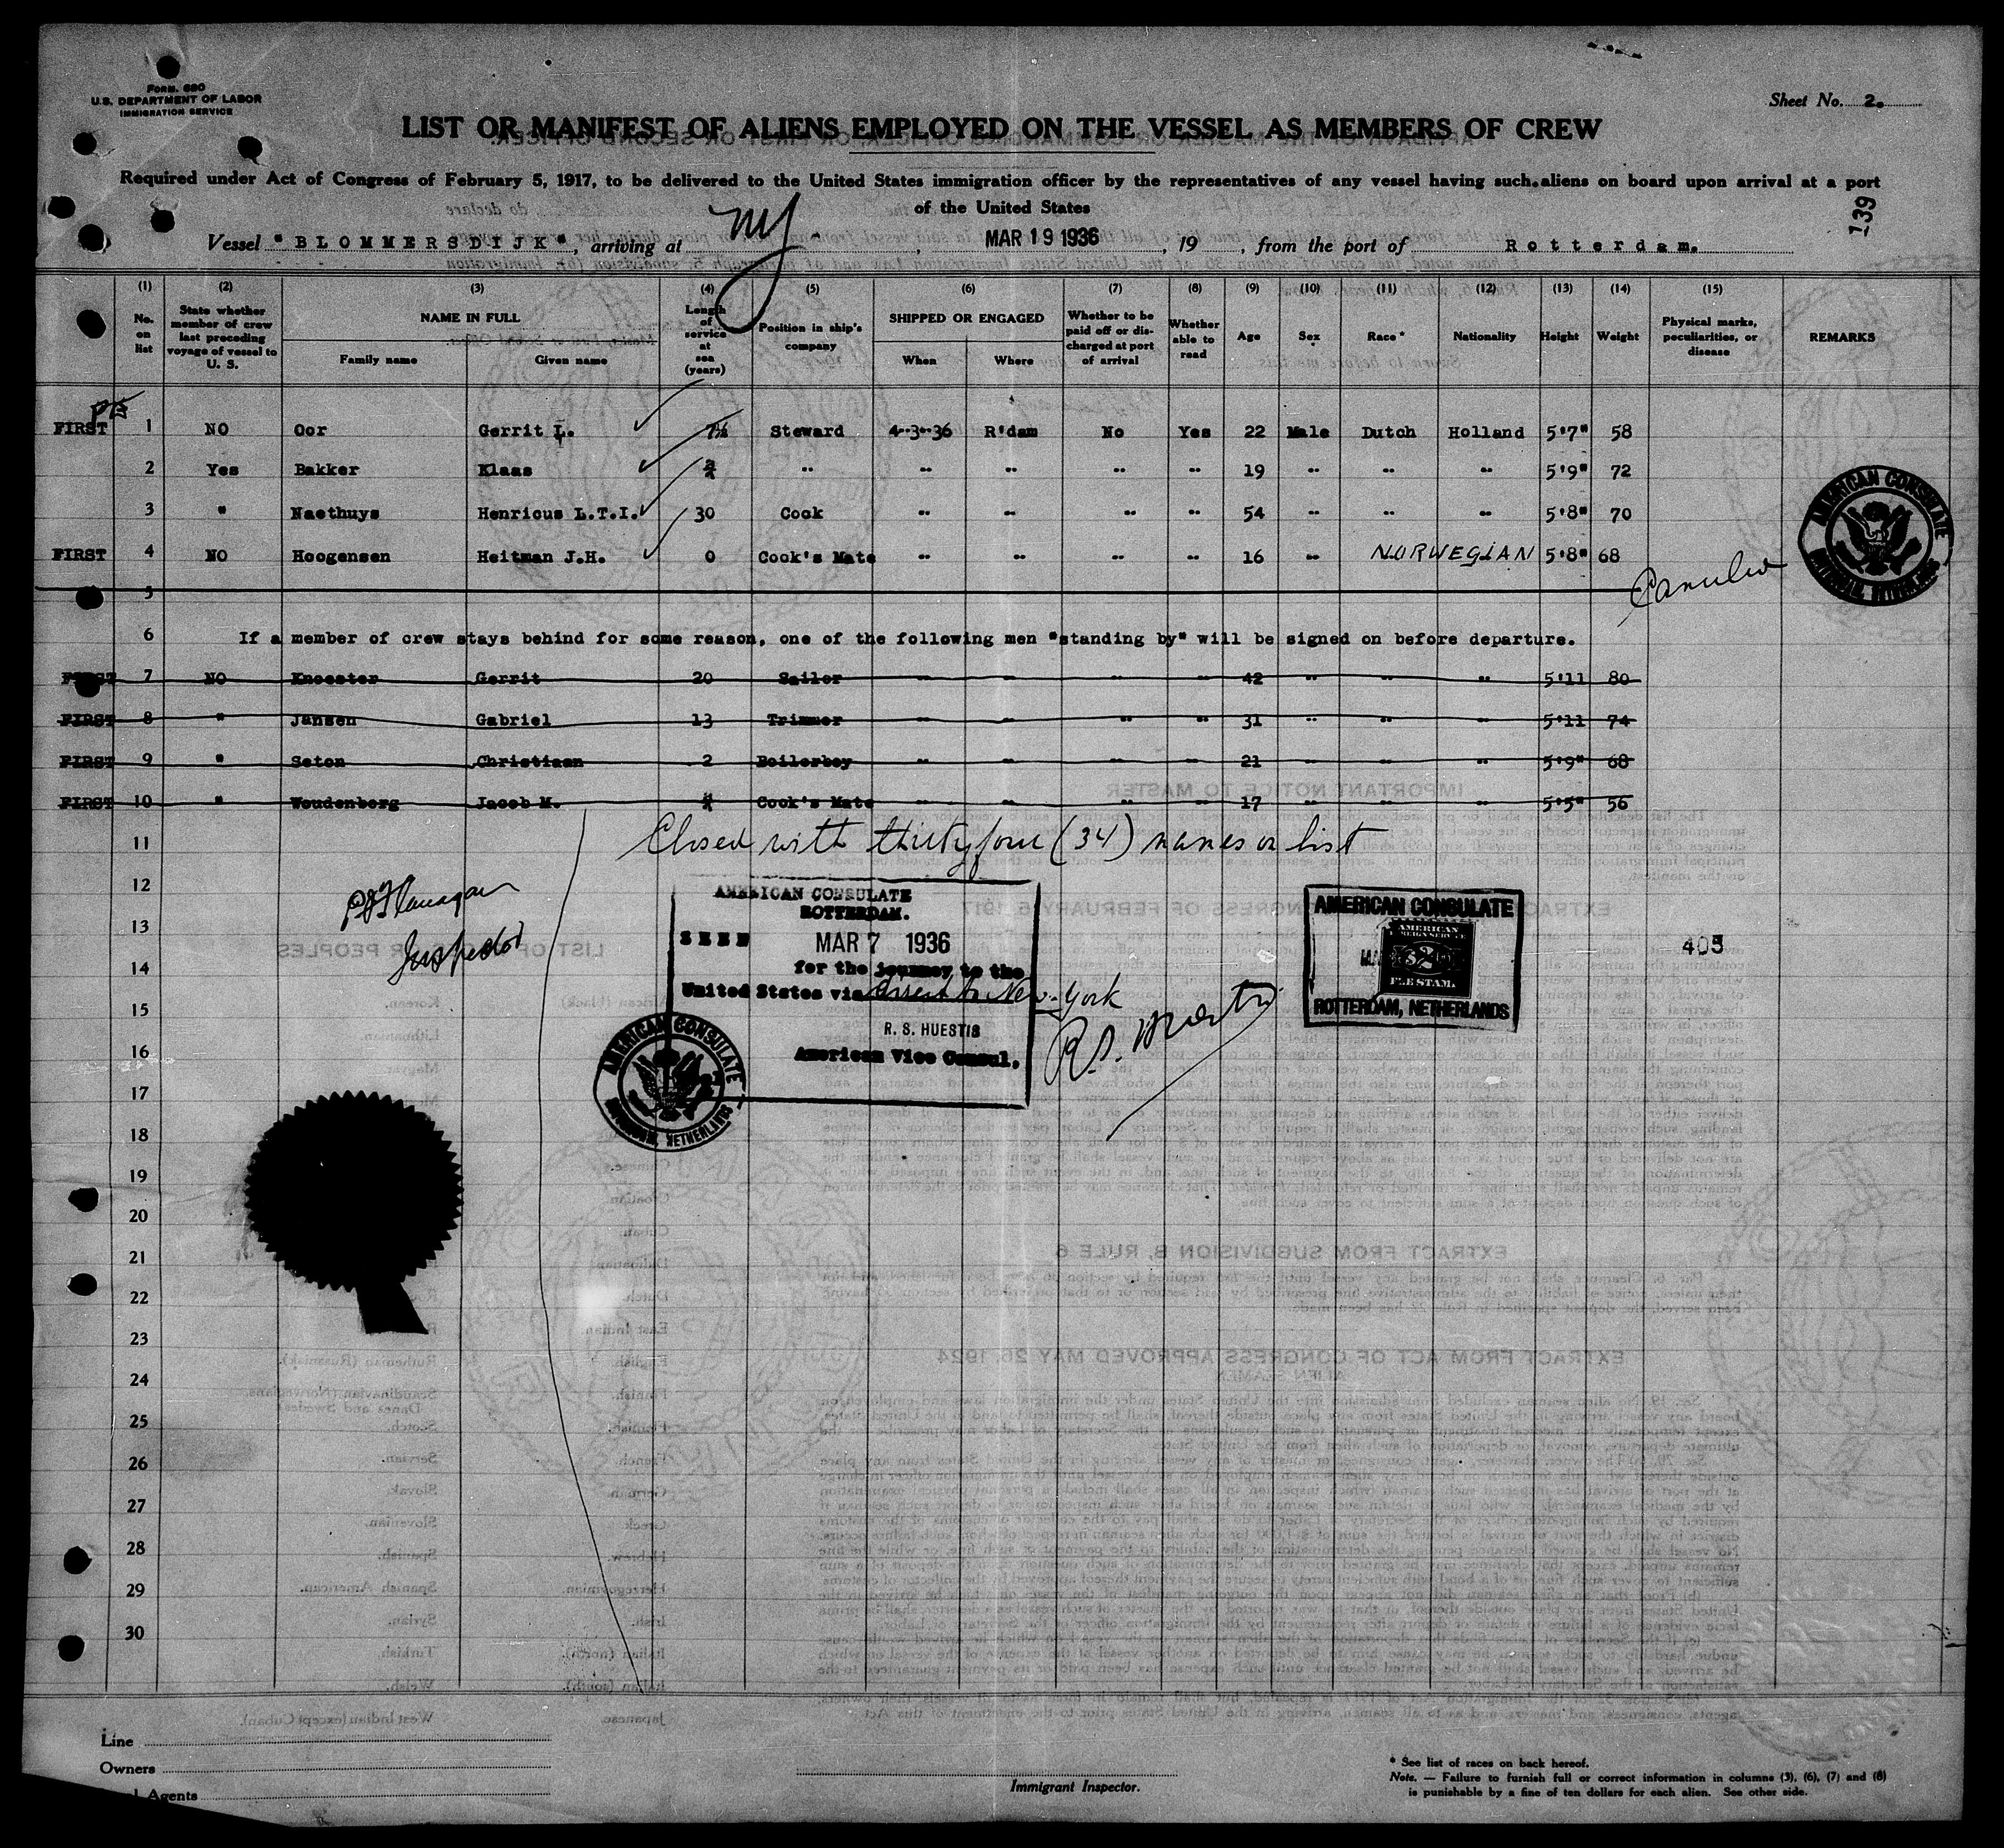 Form 680
U.S. DEPARTMENT OF LABOR
IMMIGRATION SERVICE
Sheet No. 2.
LIST OR MANIFEST OF ALIENS EMPLOYED ON THE VESSEL AS MEMBERS OF CREW
Required under Act of Congress of February 5, 1917, to be delivered to the United States immigration officer by the representatives of any vessel having such aliens on board upon arrival at a port
of the United States
139
Vessel "BLOMMERSDIJK", arriving at NY, MAR 19 1936, 19 , from the port of Rotterdam.
(1) (2) (3) (4) (5) (6) (7) (8) (9) (10) (11) (12) (13) (14) (15)
No. on list
State whether member of crew last preceding voyage of vessel to U. S.
NAME IN FULL
Family name Given name
Length of service at sea (years)
Position in ship's company
SHIPPED OR ENGAGED
When Where
Whether to be paid off or discharged at port of arrival
Whether able to read
Age Sex Race* Nationality Height Weight
Physical marks, peculiarities, or disease
REMARKS
FIRST 1 NO Oor Gerrit L. 7½ Steward 4-3-36 R'dam No Yes 22 Male Dutch Holland 5'7" 58
2 Yes Bakker Klaas " " " " " 19 " " " 5'9" 72
3 " Naethuys Henricus L.T.I. 30 Cook " " " " 54 " " " 5'8" 70
FIRST 4 NO Hoogensen Heitman J.H. 0 Cook's Mate " " " " 16 " NORWEGIAN 5'8" 68
5
AMERICAN CONSULATE
6 If a member of crew stays behind for some reason, one of the following men "standing by" will be signed on before departure.
FIRST 7 NO Knoester Gerrit 20 Sailor " " " " 42 " " " 5'11 80
FIRST 8 " Jansen Gabriel 13 Trimmer " " " " 31 " " " 5'11 74
FIRST 9 " Seton Christiaan 2 Boilerboy " " " " 21 " " " 5'9" 68
FIRST 10 " Woudenberg Jacob M. Cook's Mate " " " " 17 " " " 5'5" 56
11 Closed with thirty four (34) names on list
12
13
14
15
16
17
18
19
20
21
22
23
24
25
26
27
28
29
30
Inspector
AMERICAN CONSULATE
ROTTERDAM.
SEEN MAR 7 1936
for the journey to the
United States via direct to New-York
R. S. HUESTIS
American Vice Consul.
AMERICAN CONSULATE
ROTTERDAM, NETHERLANDS
AMERICAN CONSULATE
AMERICAN
FOREIGN SERVICE
$2
FEE STAMP
ROTTERDAM, NETHERLANDS
405
Line
Owners
Agents
Immigrant Inspector.
* See list of races on back hereof.
Note. — Failure to furnish full or correct information in columns (3), (6), (7) and (8)
is punishable by a fine of ten dollars for each alien. See other side.